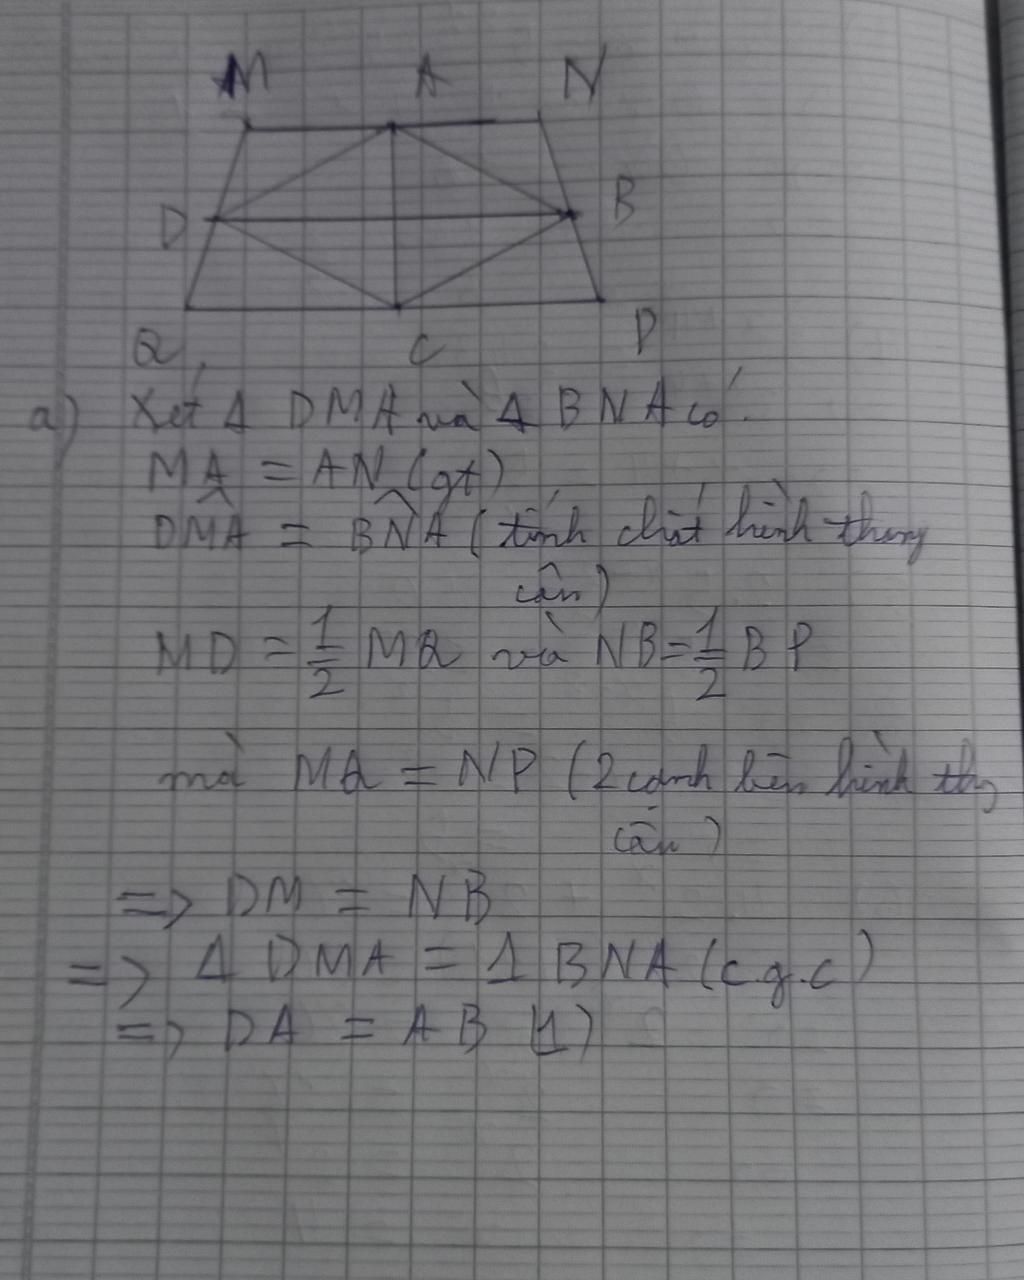 M A N
D B
Q C P
a) Xét Δ DMA và Δ BNA có:
MA = AN (gt)
DM̂A = BN̂A (tính chất hình thang
cân)
MD = 1/2 MQ và NB = 1/2 BP
mà MQ = NP (2 cạnh bên hình thg
cân)
=> DM = NB
=> Δ DMA = Δ BNA (c.g.c)
=> DA = AB (1)